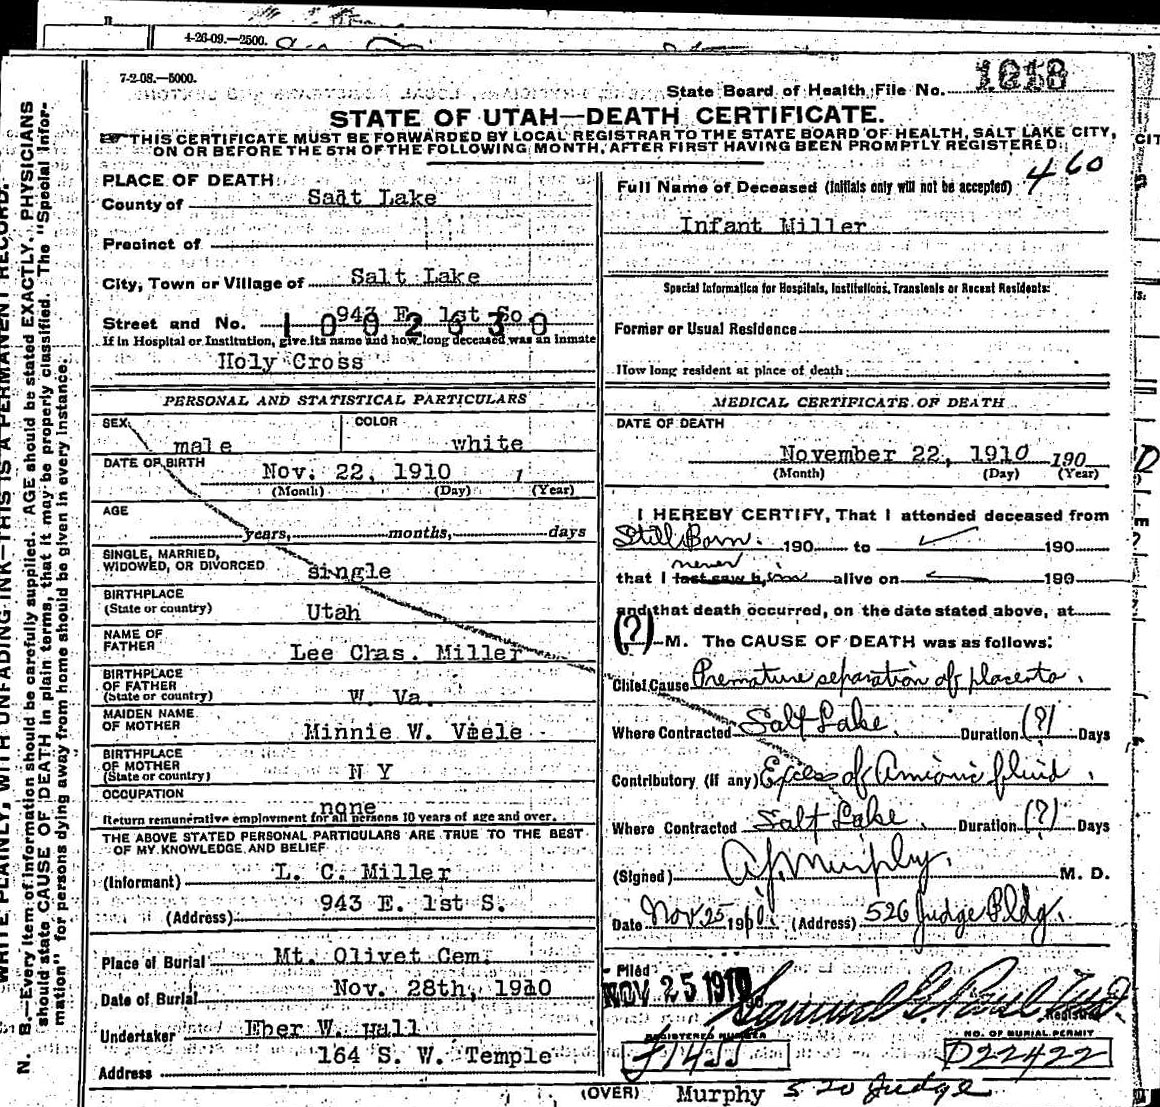 4-26-09.—2500.
7-2-08.—5000.
State Board of Health File No. 1018
STATE OF UTAH—DEATH CERTIFICATE.
THIS CERTIFICATE MUST BE FORWARDED BY LOCAL REGISTRAR TO THE STATE BOARD OF HEALTH, SALT LAKE CITY,
ON OR BEFORE THE 5TH OF THE FOLLOWING MONTH, AFTER FIRST HAVING BEEN PROMPTLY REGISTERED.
N. B.—Every item of information should be carefully supplied. AGE should be stated EXACTLY. PHYSICIANS
should state CAUSE OF DEATH in plain terms, that it may be properly classified. The "Special Infor-
mation" for persons dying away from home should be given in every instance.
WRITE PLAINLY, WITH UNFADING INK—THIS IS A PERMANENT RECORD.
PLACE OF DEATH
County of Salt Lake
Precinct of
City, Town or Village of Salt Lake
Street and No. 943 E. 1st So.
1002630
If in Hospital or Institution, give its name and how long deceased was an inmate
Holy Cross
PERSONAL AND STATISTICAL PARTICULARS
SEX male
COLOR white
DATE OF BIRTH Nov. 22, 1910 1
(Month) (Day) (Year)
AGE
years, months, days
SINGLE, MARRIED,
WIDOWED, OR DIVORCED single
BIRTHPLACE
(State or country) Utah
NAME OF
FATHER Lee Chas. Miller
BIRTHPLACE
OF FATHER
(State or country) W. Va.
MAIDEN NAME
OF MOTHER Minnie W. Viele
BIRTHPLACE
OF MOTHER
(State or country) N Y
OCCUPATION
none
Return remunerative employment for all persons 10 years of age and over.
THE ABOVE STATED PERSONAL PARTICULARS ARE TRUE TO THE BEST
OF MY KNOWLEDGE AND BELIEF
(Informant) L. C. Miller
(Address) 943 E. 1st S.
Place of Burial Mt. Olivet Cem.
Date of Burial Nov. 28th, 1910
Undertaker Eber W. Hall
164 S. W. Temple
Address
Full Name of Deceased (Initials only will not be accepted) 460
Infant Miller
Special Information for Hospitals, Institutions, Transients or Recent Residents:
Former or Usual Residence
How long resident at place of death:
MEDICAL CERTIFICATE OF DEATH
DATE OF DEATH
November 22, 1910 190
(Month) (Day) (Year)
I HEREBY CERTIFY, That I attended deceased from
Still Born. 190 to 190
never
that I last saw him alive on 190
and that death occurred, on the date stated above, at
(?) M. The CAUSE OF DEATH was as follows:
Chief Cause Premature separation of placenta.
Where Contracted Salt Lake. Duration (?) Days
Contributory (if any) Excess of Amionic fluid.
Where Contracted Salt Lake. Duration (?) Days
(Signed) A. J. Murphy. M. D.
Date Nov 25 1910. (Address) 526 Judge Bldg.
Filed
NOV 25 1910
Registrar
REGISTERED NUMBER
NO. OF BURIAL PERMIT
D22422
(OVER) Murphy 520 Judge